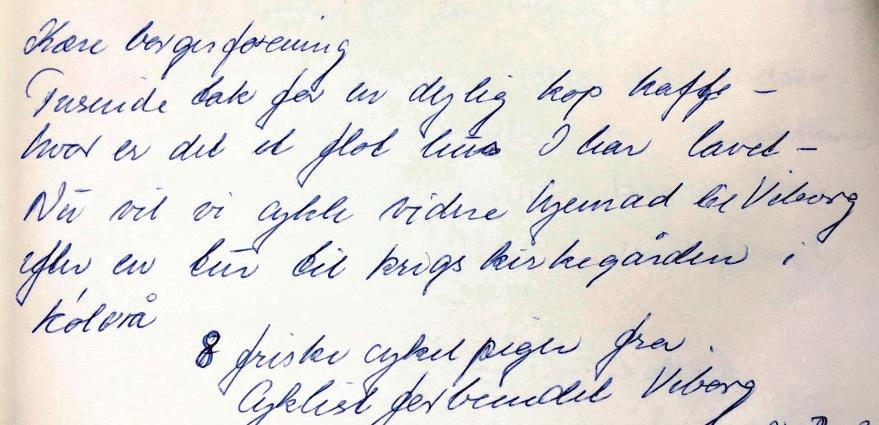 Kære borgerforening
Tusinde tak for en dejlig kop kaffe -
hvor er det et flot hus I har lavet -
Nu vil vi cykle videre hjemad til Viborg
efter en tur til krigskirkegården i
Kølvrå
8 friske cykelpiger fra
Cyklistforbundet Viborg